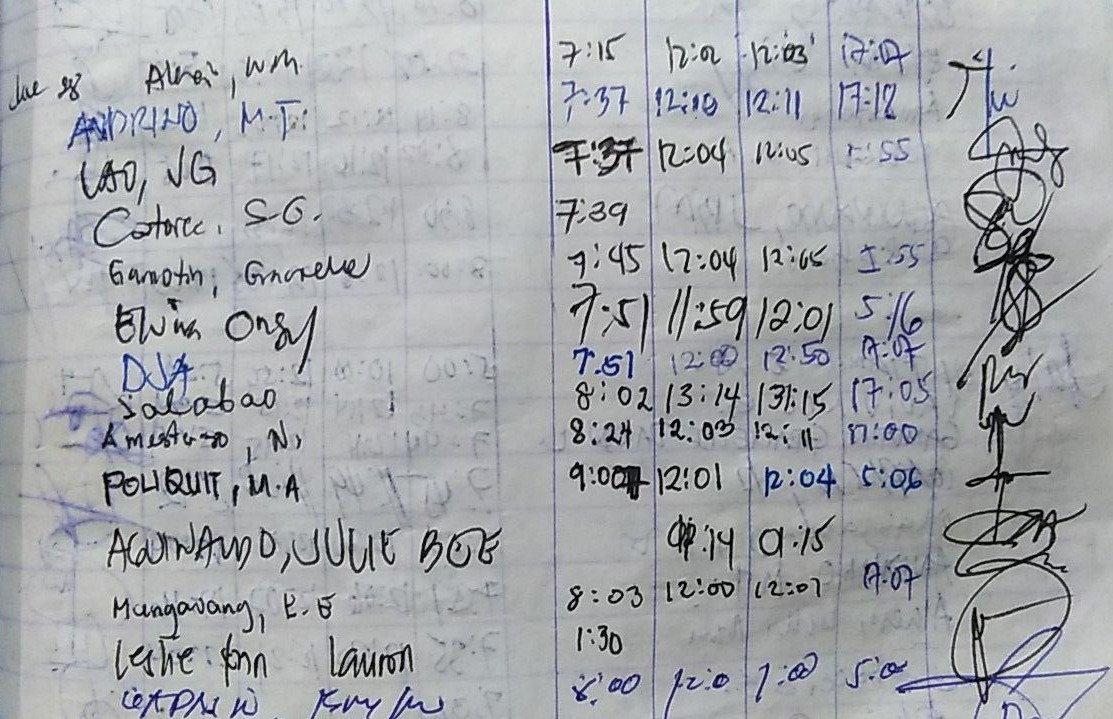 June 28
Almai, W.M. 7:15 12:02 12:03 17:07
ANDRINO, M.T. 7:37 12:10 12:11 17:12
LAO, JG 7:37 12:04 12:05 5:55
Catorce, S.G. 7:39
Gamotin, 7:45 12:04 12:05 5:55
Elvira Ongy 7:51 11:59 12:01 5:16
DJA 7:51 12:00 12:50 17:07
Salabao 8:02 13:14 13:15 17:05
Amestuzo, N, 8:24 12:03 12:11 17:00
POLIQUIT, M.A 9:00 12:01 12:04 5:06
AGUINALDO, JULIE BEE 01:14 01:15
Mangavang, E.E 8:03 12:00 12:01 17:07
Leslie Ann Lauron 1:30
8:00 12:0 1:00 5:00